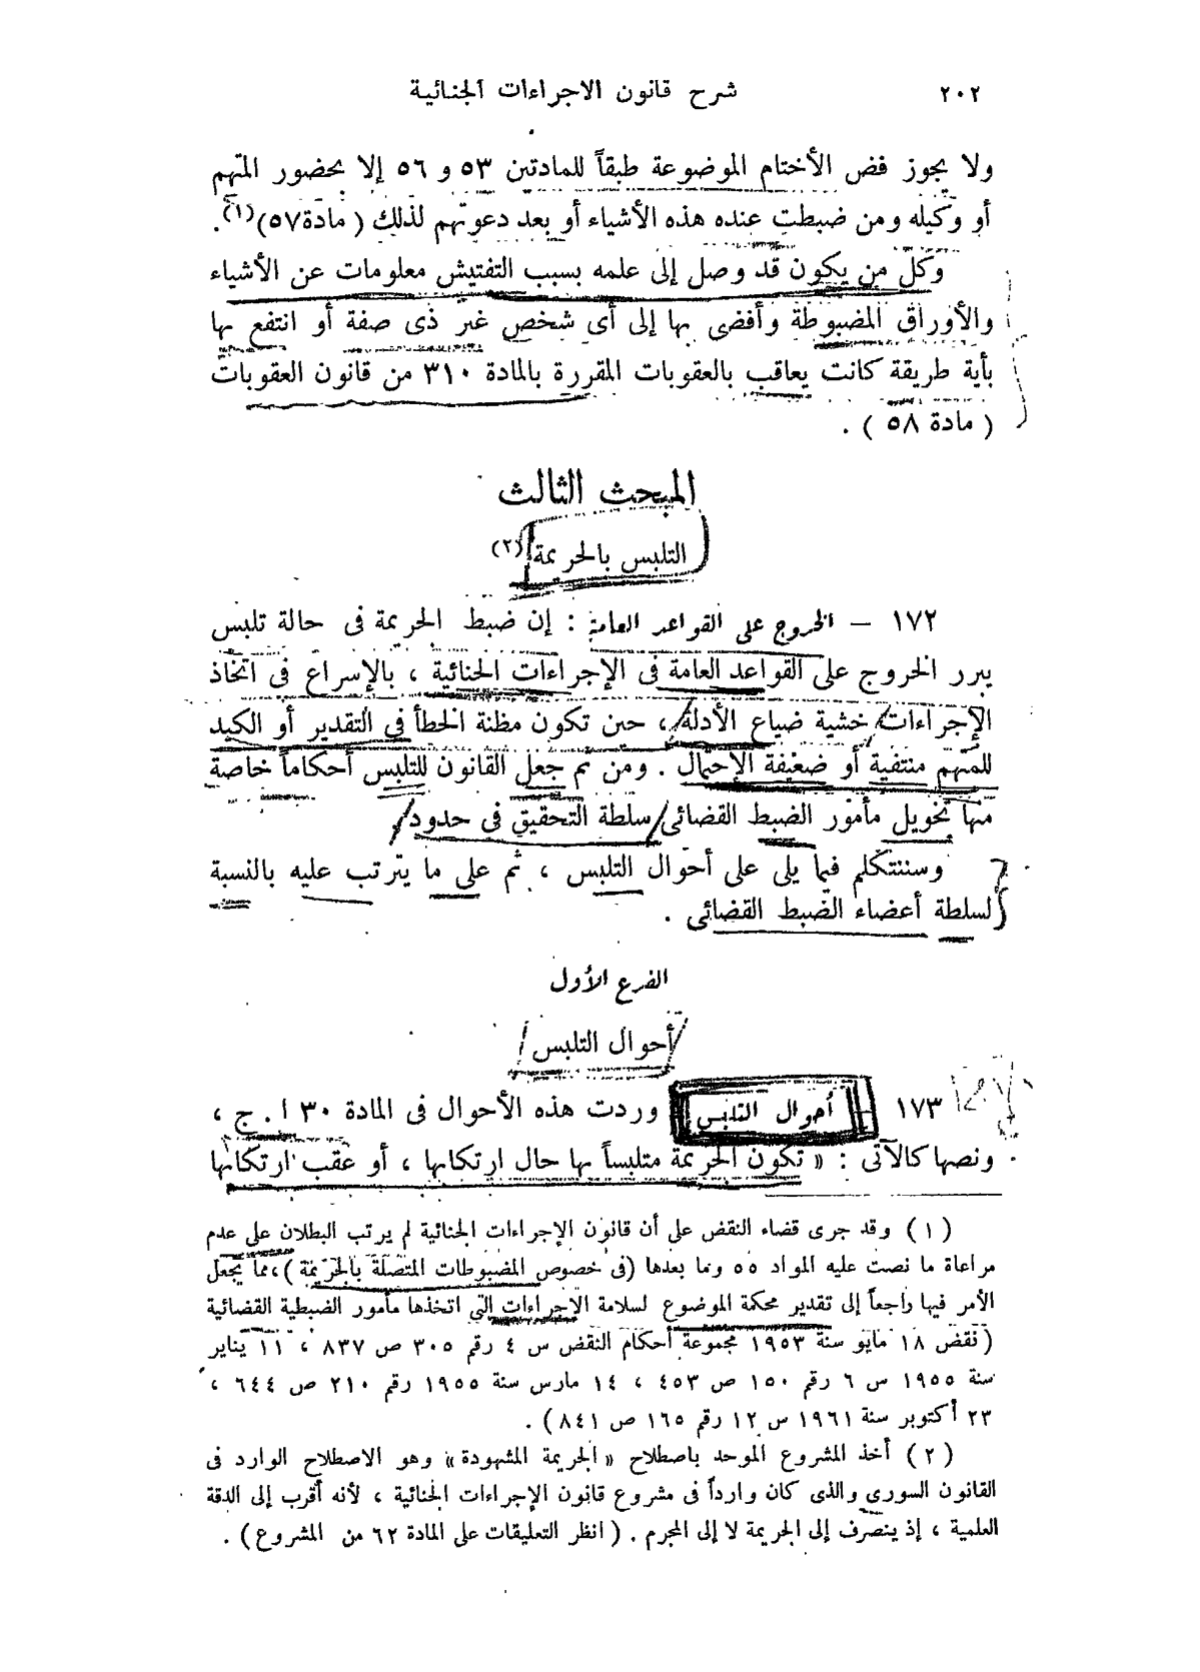 ٢٠٢ شرح قانون الاجراءات الجنائية
ولا يجوز فض الأختام الموضوعة طبقاً للمادتين ٥٣ و ٥٦ إلا بحضور المتهم
أو وكيله ومن ضبطت عنده هذه الأشياء أو بعد دعوتهم لذلك ( مادة ٥٧)(١).
وكل من يكون قد وصل إلى علمه بسبب التفتيش معلومات عن الأشياء
والأوراق المضبوطة وأفضى بها إلى أى شخص غير ذى صفة أو انتفع بها
بأية طريقة كانت يعاقب بالعقوبات المقررة بالمادة ٣١٠ من قانون العقوبات
( مادة ٥٨ ) .
المبحث الثالث
التلبس بالجريمة (٢)
١٧٢ – الخروج على القواعد العامة : إن ضبط الجريمة فى حالة تلبس
يبرر الخروج على القواعد العامة فى الإجراءات الجنائية ، بالإسراع فى اتخاذ
الإجراءات خشية ضياع الأدلة ، حين تكون مظنة الخطأ فى التقدير أو الكيد
للمتهم منتفية أو ضعيفة الإحتمال . ومن ثم جعل القانون للتلبس أحكاماً خاصة
منها تخويل مأمور الضبط القضائى سلطة التحقيق فى حدود .
وسنتكلم فيما يلى على أحوال التلبس ، ثم على ما يترتب عليه بالنسبة
لسلطة أعضاء الضبط القضائى .
الفرع الأول
أحوال التلبس
١٧٣ – أحوال التلبس : وردت هذه الأحوال فى المادة ٣٠ ا . ج ،
ونصها كالآتى : « تكون الجريمة متلبساً بها حال ارتكابها ، أو عقب ارتكابها
( ١ ) وقد جرى قضاء النقض على أن قانون الإجراءات الجنائية لم يرتب البطلان على عدم
مراعاة ما نصت عليه المواد ٥٥ وما بعدها (فى خصوص المضبوطات المتصلة بالجريمة )، مما يجعل
الأمر فيها راجعاً إلى تقدير محكمة الموضوع لسلامة الإجراءات التي اتخذها مأمور الضبطية القضائية
( نقض ١٨ مايو سنة ١٩٥٣ مجموعة أحكام النقض س ٤ رقم ٣٠٥ ص ٨٣٧ ، ١١ يناير
سنة ١٩٥٥ س ٦ رقم ١٥٠ ص ٤٥٣ ، ١٤ مارس سنة ١٩٥٥ رقم ٢١٠ ص ٦٤٤ ،
٢٣ أكتوبر سنة ١٩٦١ س ١٢ رقم ١٦٥ ص ٨٤١ ) .
( ٢ ) أخذ المشروع الموحد باصطلاح «الجريمة المشهودة» وهو الاصطلاح الوارد فى
القانون السورى والذى كان وارداً فى مشروع قانون الإجراءات الجنائية ، لأنه أقرب إلى الدقة
العلمية ، إذ ينصرف إلى الجريمة لا إلى المجرم . ( انظر التعليقات على المادة ٦٢ من المشروع ) .